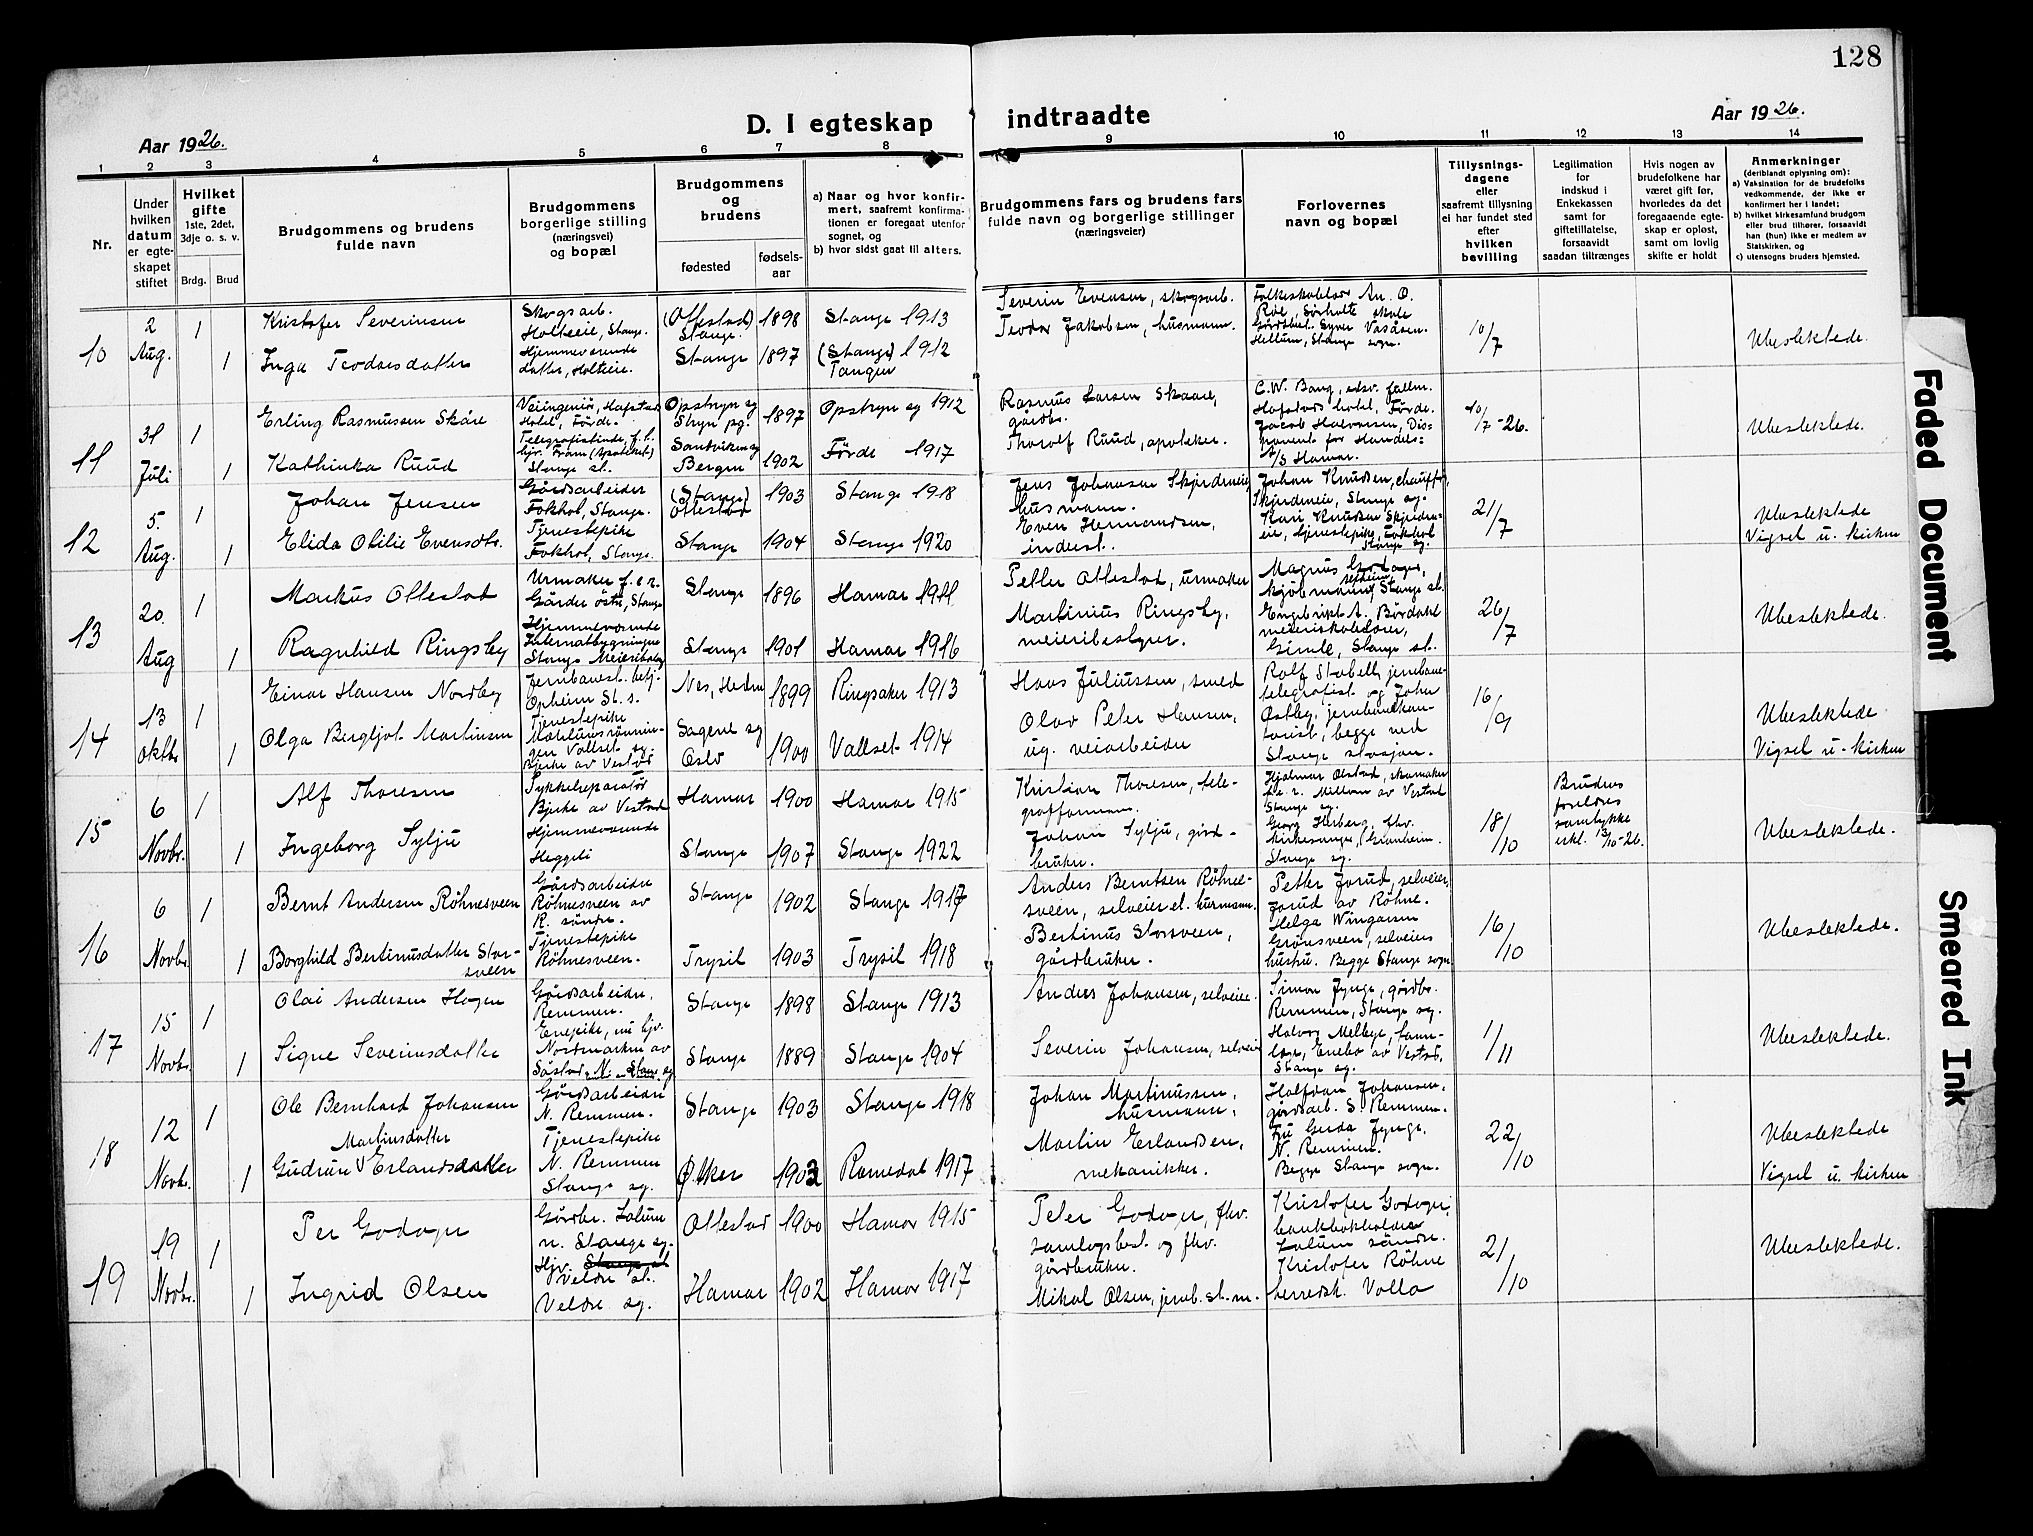 128
D. I egteskap indtraadte
Aar 1926.
Aar 1926.
1 2 3 4 5 6 7 8 9 10 11 12 13 14
Nr.
Under hvilken datum er egteskapet stiftet
Hvilket gifte
1ste, 2det, 3dje o. s. v.
Brdg. Brud
Brudgommens og brudens fulde navn
Brudgommens borgerlige stilling (næringsvei) og bopæl
Brudgommens og brudens
fødested
fødselsaar
a) Naar og hvor konfirmert, saafremt konfirmationen er foregaat utenfor sognet, og
b) hvor sidst gaat til alters.
Brudgommens fars og brudens fars fulde navn og borgerlige stillinger (næringsveier)
Forlovernes navn og bopæl
Tillysningsdagene eller saafremt tillysning ei har fundet sted efter hvilken bevilling
Legitimation for indskud i Enkekassen samt for giftetillatelse, forsaavidt saadan tiltrænges
Hvis nogen av brudefolkene har været gift før, hvorledes da det foregaaende egteskap er opløst, samt om lovlig skifte er holdt
Anmerkninger (deriblandt oplysning om):
a) Vaksination for de brudefolks vedkommende, der ikke er konfirmert her i landet;
b) hvilket kirkesamfund brudgom eller brud tilhører, forsaavidt han (hun) ikke er medlem av Statskirken, og
c) utensogns bruders hjemsted.
10
2 Aug.
1
Kristofer Severinsen
Skogsarb. Holteeie, Stange.
(Ottestad) Stange
1898
Stange 1913
Severin Evensen, skogsarb.
1
Inga Teodorsdatter
Hjemmeværende datter, Holteeie.
Stange
1897
(Stange) 1912 Tangen
Teodor Jakobsen, husmann.
Folkeskolelærer An. O. Røe, Sørholte skole
Hellum, Stange sogn.
10/7
Ubeslektede.
11
31 Juli
1
Erling Rasmussen Skåre
Veiingeniør, Hafstad Hotel, Førde.
Opstryn sg Stryn pg.
1897
Opstryn sg 1912
Rasmus Larsen Skaare, gårdbr.
1
Kathinka Ruud
Telegrafistinde, f. h. hjv. Fram (Apoteket) Stange st.
Sandviken sg Bergen
1902
Førde 1917
Thorolf Ruud, apoteker.
C. W. Bang, edsv. fullm. Hafstads hotel, Førde.
Jacob Halvorsen, Disponent for Handels- A/S Hamar.
10/7-26.
Ubeslektede.
12
5. Aug.
1
Johan Jensen
Gårdsarbeider Fokhol, Stange.
(Stange) Ottestad
1903
Stange 1918
Jens Johansen Skjerdmeie, husmann.
1
Elida Otilie Evensdtr.
Tjenestepike Fokhol, Stange.
Stange
1904
Stange 1920
Even Hermandsen, inderst.
Johan Knudsen, chauffør, Stange sg.
Kari Knudsen, tjenestepike, Fokhol Stange sg.
21/7
Ubeslektede
Vigsel u. kirken
13
20. Aug
1
Markus Ottestad
Urmaker f. e. r. Gårder østre, Stange
Stange
1896
Hamar 1911
Petter Ottestad, urmaker
1
Ragnhild Ringsby
Hjemmeværende Internatbygningen Stange Meieribolig
Stange
1901
Hamar 1916
Martinius Ringsby, meieribestyrer.
Magnus Godager, kjøbmann, Stange st.
Engebrikt A. Børdahl meieriskolelærer, Gimle, Stange st.
26/7
Ubeslektede.
14
13 oktbr
1
Einar Hansen Nordby
Jernbanest. betj. Opheim St. s.
Nes, Hedm
1899
Ringsaker 1913
Hans Juliussen, smed
1
Olga Bergljot Martinsen
Tjenestepike
Bjerke av Vestad
Sagene sg Oslo
1900
Vallset 1914
Olav Peter Hansen, ug. veiarbeider
Rolf Stabell, jernbanetelegrafist og John Østby, jernbanekontorist, begge ved Stange stasjon.
16/9
Ubeslektede
Vigsel u. kirken
15
6 Novbr.
1
Alf Thoresen
Sykkelreparatør Bjerke av Vestad
Hamar
1900
Hamar 1915
Kristian Thoresen, telegrafformann.
1
Ingeborg Sylju
Hjemmeværende Heggeli
Stange
1907
Stange 1922
Johan Sylju, gårdbruker.
Hjalmar Olstad, skomaker f. e. r. Mellom av Vestad Stange sg.
Georg Herberg, fhv. kirkesanger, Granheim. Stange sg.
18/10
Brudens foreldres samtykke erkl. 13/10-26.
Ubeslektede.
16
6 Novbr.
1
Bernt Andersen Røhnesveen
Gårdsarbeider Røhnesveen av R. søndre.
Stange
1902
Stange 1917
Anders Berntsen Røhnesveen, selveier el. husmann.
1
Borghild Bertinusdatter Storsveen
Tjenestepike Røhnesveen.
Trysil
1903
Trysil 1918
Bertinus Storsveen, gårdbruker.
Petter Jorud, selveier, Jorud av Røhne.
Helga Wingersen Grønsveen, selveiers hustru. Begge Stange sogn.
16/10
Ubeslektede.
17
15 Novbr.
1
Olai Andersen Hagen
Gårdsarbeider, Remmen.
Stange
1898
Stange 1913
Anders Johansen, selveier.
1
Signe Severinsdatter
Enepike, nu hjv. Nordmarken av Såstad, N. Stange sg
Stange
1889
Stange 1904
Severin Johansen, selveier
Simon Jynge, gårdbr. Remmen, Stange sg.
Halvor Melbye, Enebo av Vestad, Stange sg.
1/11
Ubeslektede.
18
12 Novbr.
1
Ole Bernhard Johansen
Gårdsarbeider N. Remmen.
Stange
1903
Stange 1918
Johan Martinussen, husmann.
1
Gudrun Martinsdatter Erlandsdatter
Tjenestepike N. Remmen Stange sg.
Østker
1903
Romedal 1917
Martin Erlandsen, mekaniker.
Halfdan Johansen, gårdsarb. S. Remmen.
Fru Gerda Jynge, N. Remmen. Begge Stange sogn.
22/10
Ubeslektede
Vigsel u. kirken
19
19 Novbr.
1
Per Godager
Gårdbr. Lalum n. Stange sg.
Ottestad
1900
Hamar 1915
Peter Godager, fhv. samlagsbest. og fhv. gårdbruker.
1
Ingrid Olsen
Hjv. Veldre st. Veldre sg.
Hamar
1902
Hamar 1917
Mikal Olsen, jernb. st. m.
Kristofer Godager, bankbokholder Lalum søndre.
Kristofer Røhne herredsk. Volla
21/10
Ubeslektede.
Faded Document
Smeared Ink